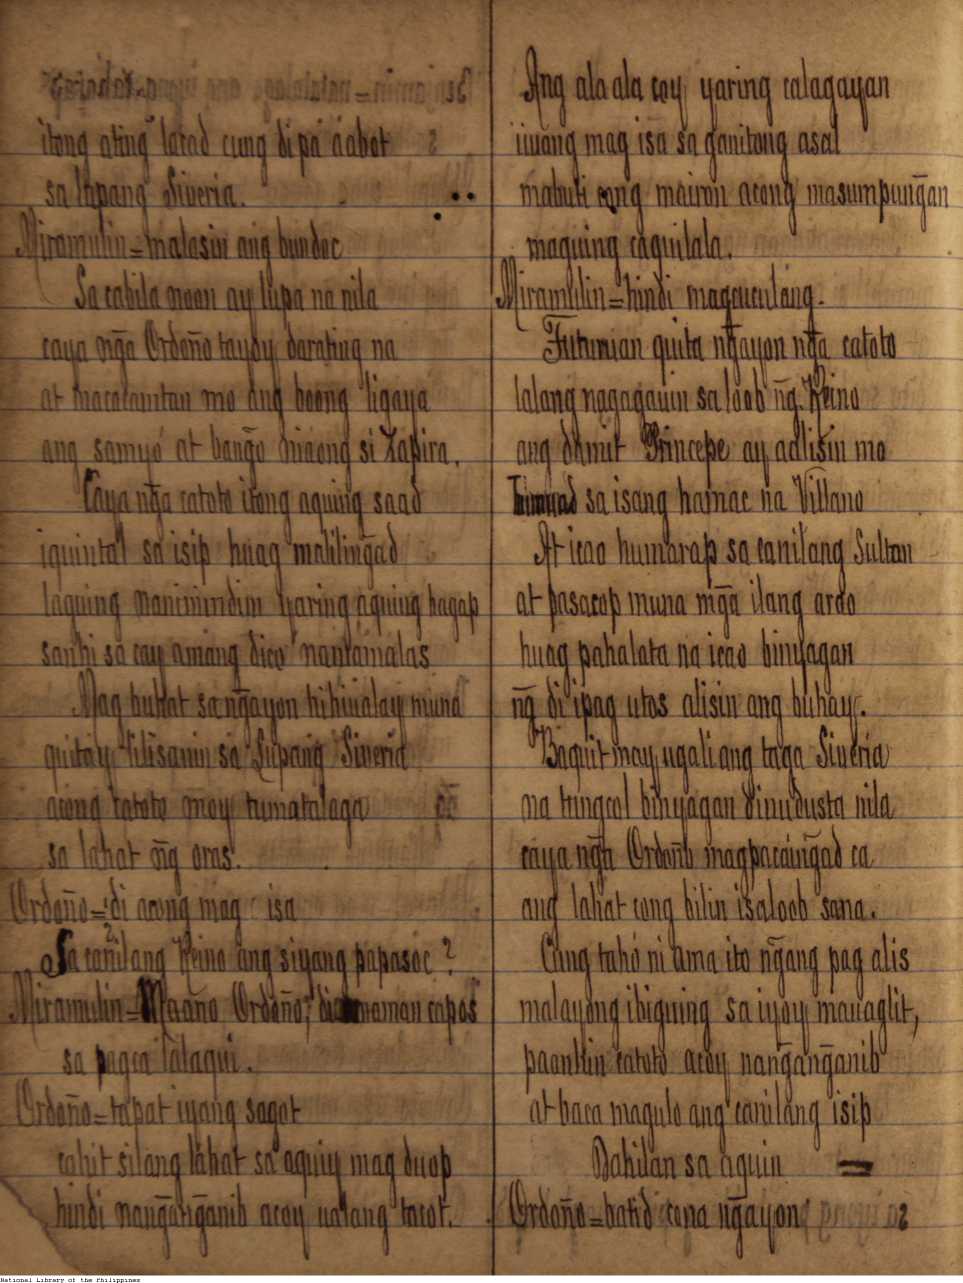 itong ating lacad cung di pa áabot
sa lupang Siveria.
Miramulin = malasin ang bundoc
Sa cabila noon ay lupa na nila
caya ng̃a Ordoño tayoy darating na
at macacamtan mo ang boong ligaya
ang samyó at bang̃o niaong si Xapira.
Caya ng̃a catoto itong aquing saad
iquintal sa isip huag maliling̃ad
laguing hagap
sanhi sa cay amang dico
Mag buhat sa ng̃ayon hihiualay muna
quitay lilisanin sa Lupang Siveria
acong catoto may tumatalaga
sa lahat ng̃ oras.
Ordoño = di acong mag isa
Sa canilang Reino ang siyang papasoc?
Miramulin = Maaño Ordoño, di naman capos
sa pagca lalaqui.
Ordoño = tapat iyang sagot
cahit silang lahat sa aquiy mag duop
hindi nang̃ang̃anib acoy ualang tacot.
Ang ala ala coy yaring calagayan
iiuang mag isa sa ganitong asal
mabuti cong mairon acong masumpung̃an
maguing caquilala.
Miramulin = hindi magcuculang.
Tutunian quita ng̃ayon ng̃a catoto
lalang nagagauin sa loob ng̃ Reino
ang damit Principe ay aalisin mo
sa isang hamac na Villano
At icao humarap sa canilang Sultan
at pasacop muna mg̃a ilang arao
huag pahalata na icao binyagan
ng̃ di ipag utos alisin ang buhay.
Baquit may ugali ang taga Siveria
na tungcol binyagan dinudusta nila
caya ng̃a Ordoño magpacaing̃ad ca
ang lahat cong bilin isaloob sana.
Cung tahó ni ama ito ng̃ang pag alis
malayong ibiguing sa iyoy mauaglit,
paanhin catoto acoy nang̃ang̃anib
at baca magulo ang canilang isip
Dahilan sa aquin =
Ordoño = batid cona ng̃ayon